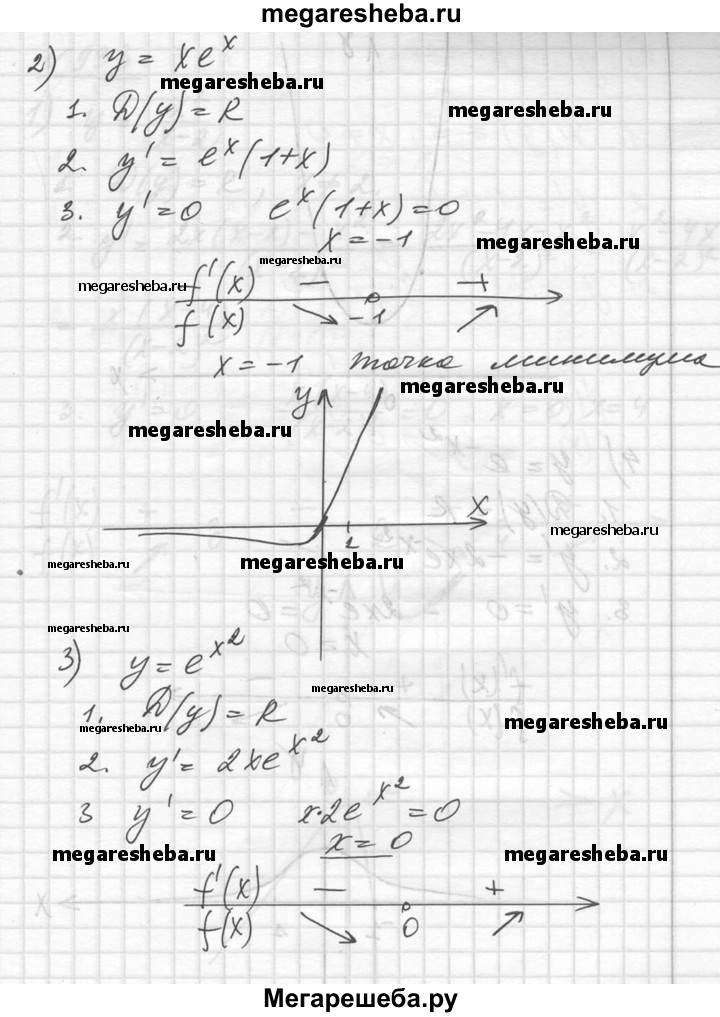 megaresheba.ru
2) y = xe^x
megaresheba.ru
1. D(y) = R
megaresheba.ru
2. y' = e^x(1+x)
3. y' = 0 e^x(1+x) = 0
x = -1
megaresheba.ru
megaresheba.ru
megaresheba.ru
f'(x) - +
f(x) -1
x = -1 точка минимума
megaresheba.ru
y
megaresheba.ru
x
megaresheba.ru
1
megaresheba.ru
megaresheba.ru
megaresheba.ru
3) y = e^x^2
megaresheba.ru
1. D(y) = R
megaresheba.ru
megaresheba.ru
2. y' = 2xe^x^2
3 y' = 0 x·2e^x^2 = 0
x = 0
megaresheba.ru
megaresheba.ru
f'(x) - +
f(x) 0
Мегарешеба.ру